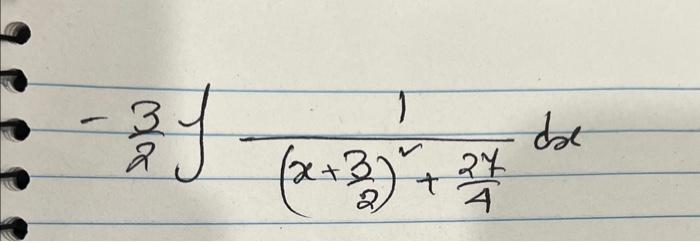 -3/2 ∫ 1/((x+3/2)² + 27/4) dx